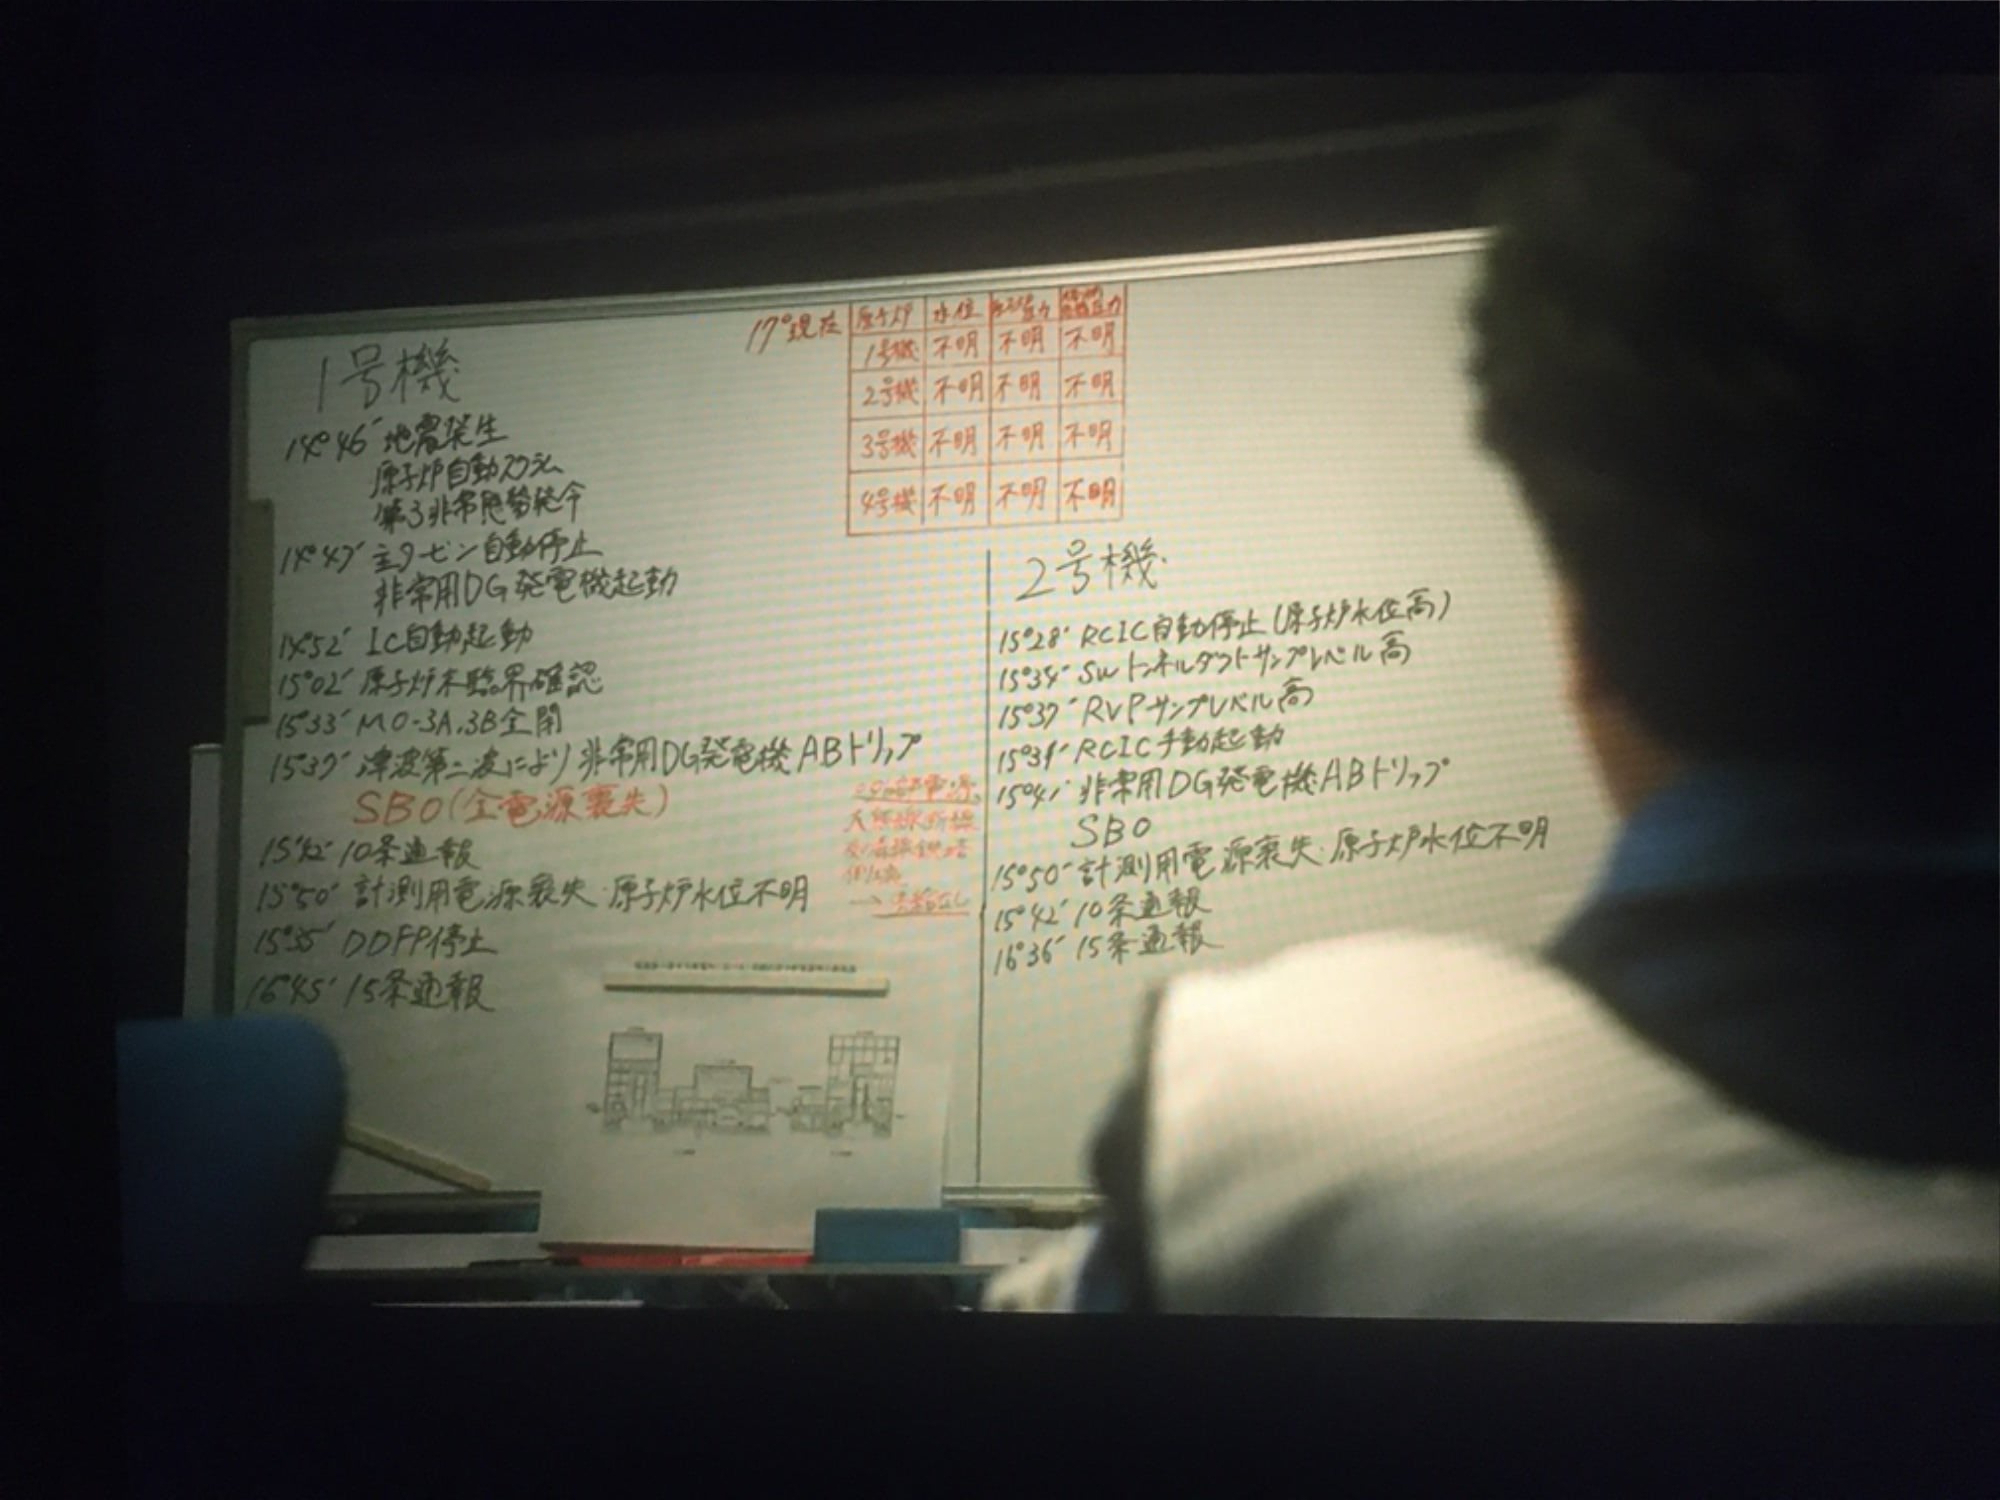 17° 現在
原子炉 水位
1号機 不明 不明 不明
2号機 不明 不明 不明
3号機 不明 不明 不明
4号機 不明 不明 不明
1号機
14°46′ 地震発生
原子炉自動スクラム
第3非常態勢発令
14°47′ 主タービン自動停止
非常用DG発電機起動
14°52′ IC自動起動
15°02′ 原子炉未臨界確認
15°33′ MO-3A.3B全閉
15°37′ 津波第二波により非常用DG発電機ABトリップ
SBO(全電源喪失)
15°42′ 10条通報
15°50′ 計測用電源喪失・原子炉水位不明
15°35′ DDFP停止
16°45′ 15条通報
2号機
15°28′ RCIC自動停止(原子炉水位高)
15°34′ SWトンネルダクトサンプレベル高
15°37′ RVPサンプレベル高
15°39′ RCIC手動起動
15°41′ 非常用DG発電機ABトリップ
SBO
15°50′ 計測用電源喪失・原子炉水位不明
15°42′ 10条通報
16°36′ 15条通報